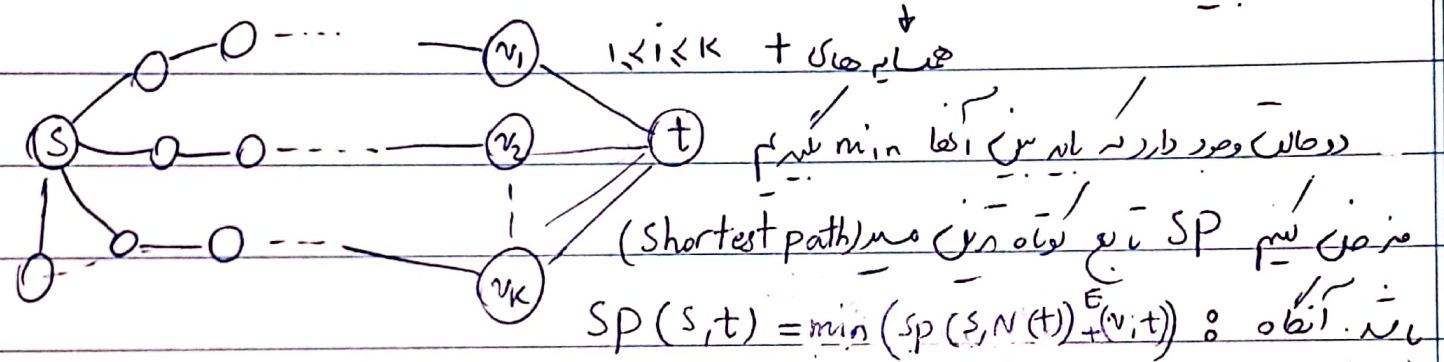 همسایه‌های t  1≤i≤k
دو حالت وجود دارد که باید بین آنها min بگیریم
فرض کنیم SP تابع کوتاه ترین مسیر (Shortest path)
باشد. آنگاه : SP(s,t) = min(SP(s,N(t)) + E(v,t))
s
v1
v2
vk
t